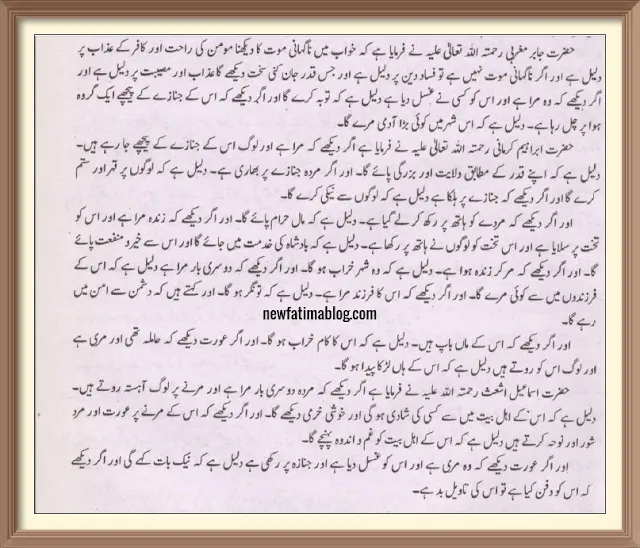 حضرت جابر مغربی رحمتہ اللہ تعالیٰ علیہ نے فرمایا ہے کہ خواب میں ناگہانی موت کا دیکھنا مومن کی راحت اور کافر کے عذاب پر
دلیل ہے اور اگر ناگہانی موت نہیں ہے تو فساد دین پر دلیل ہے اور جس قدر جان کنی سخت دیکھے گا عذاب اور مصیبت پر دلیل ہے اور
اگر دیکھے کہ وہ مرا ہے اور اس کو کسی نے غسل دیا ہے دلیل ہے کہ توبہ کرے گا اور اگر دیکھے کہ اس کے جنازے کے پیچھے ایک گروہ
ہوا پر چل رہا ہے۔ دلیل ہے کہ اس شہر میں کوئی بڑا آدمی مرے گا۔
حضرت ابراہیم کرمانی رحمتہ اللہ تعالیٰ علیہ نے فرمایا ہے اگر دیکھے کہ مرا ہے اور لوگ اس کے جنازے کے پیچھے جا رہے ہیں۔
دلیل ہے کہ اپنے قدر کے مطابق ولایت اور بزرگی پائے گا۔ اور اگر مردہ جنازے پر بھاری ہے۔ دلیل ہے کہ لوگوں پر قہر اور ستم
کرے گا اور اگر دیکھے کہ جنازے پر ہلکا ہے دلیل ہے کہ لوگوں سے نیکی کرے گا۔
اور اگر دیکھے کہ مردے کو ہاتھ پر رکھ کر لے گیا ہے۔ دلیل ہے کہ مال حرام پائے گا۔ اور اگر دیکھے کہ زندہ مرا ہے اور اس کو
تخت پر سلایا ہے اور اس تخت کو لوگوں نے ہاتھ پر رکھا ہے۔ دلیل ہے کہ بادشاہ کی خدمت میں جائے گا اور اس سے خیر و منفعت پائے
گا۔ اور اگر دیکھے کہ مر کر زندہ ہوا ہے۔ دلیل ہے کہ وہ شہر خراب ہو گا۔ اور اگر دیکھے کہ دوسری بار مرا ہے دلیل ہے کہ اس کے
فرزندوں میں سے کوئی مرے گا۔ اور اگر دیکھے کہ اس کا فرزند مرا ہے۔ دلیل ہے کہ تونگر ہو گا۔ اور کہتے ہیں کہ دشمن سے امن میں
رہے گا۔
newfatimablog.com
اور اگر دیکھے کہ اس کے ماں باپ ہیں۔ دلیل ہے کہ اس کا کام خراب ہو گا۔ اور اگر عورت دیکھے کہ حاملہ تھی اور مری ہے
اور لوگ اس کو روتے ہیں دلیل ہے کہ اس کے ہاں لڑکا پیدا ہو گا۔
حضرت اسماعیل اشعث رحمتہ اللہ علیہ نے فرمایا ہے اگر دیکھے کہ مردہ دوسری بار مرا ہے اور مرنے پر لوگ آہستہ روتے ہیں۔
دلیل ہے کہ اس کے اہل بیت میں سے کسی کی شادی ہو گی اور خوشی خرمی دیکھے گا۔ اور اگر دیکھے کہ اس کے مرنے پر عورت اور مرد
شور اور نوحہ کرتے ہیں دلیل ہے کہ اس کے اہل بیت کو غم و اندوہ پہنچے گا۔
اور اگر عورت دیکھے کہ وہ مری ہے اور اس کو غسل دیا ہے اور جنازہ پر رکھی ہے دلیل ہے کہ نیک بات کہے گی اور اگر دیکھے
کہ اس کو دفن کیا ہے تو اس کی تاویل بد ہے۔